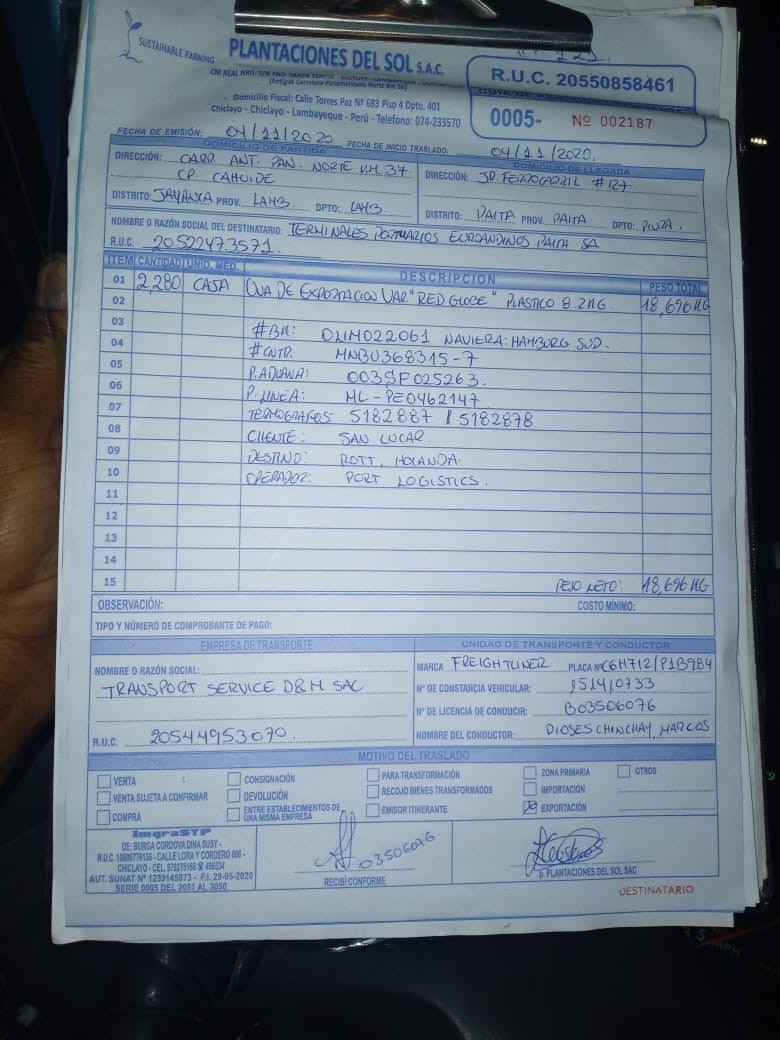 SUSTAINABLE FARMING
PLANTACIONES DEL SOL S.A.C.
(Antigua Carretera Panamericana Norte Km 56)
Domicilio Fiscal: Calle Torres Paz Nº 683 Piso 4 Dpto. 401
Chiclayo - Chiclayo - Lambayeque - Perú - Telefono: 074-233570
R.U.C. 20550858461
0005- Nº 002187
FECHA DE EMISIÓN: 04/11/2020 FECHA DE INICIO TRASLADO: 04/11/2020.
DOMICILIO DE PARTIDA
DIRECCIÓN: CARR. ANT. PAN. NORTE KM. 37
CP. CAHUIDE
DISTRITO: JAYANCA PROV. LAMB. DPTO: LAMB.
DOMICILIO DE LLEGADA
DIRECCIÓN: JR. FERROCARRIL #127
DISTRITO: PAITA PROV. PAITA DPTO: PIURA.
NOMBRE O RAZÓN SOCIAL DEL DESTINATARIO: TERMINALES PORTUARIOS EUROANDINOS PAITA SA
R.U.C. 20522473571.
ITEM CANTIDAD UNID. MED. DESCRIPCION PESO TOTAL
01 2,280 CAJA UVA DE EXPORTACION VAR "RED GLOBE" PLASTICO 8.2KG. 18,696 KG
02
03 #BK: NAVIERA: HAMBURG SUD.
04 #CNTR: MNBU368315-7
05 P. ADUANA:
06 P. LINEA: ML-PE0462147
07 TERMOGRAFOS: 5182887 / 5182878
08 CLIENTE: SAN LUCAR.
09 DESTINO: ROTT, HOLANDA.
10 OPERADOR: PORT LOGISTICS.
11
12
13
14
15 PESO NETO: 18,696 KG
OBSERVACIÓN: COSTO MÍNIMO:
TIPO Y NÚMERO DE COMPROBANTE DE PAGO:
EMPRESA DE TRANSPORTE
NOMBRE O RAZÓN SOCIAL:
TRANSPORT SERVICE D&M SAC
R.U.C. 20544953070.
UNIDAD DE TRANSPORTE Y CONDUCTOR
MARCA FREIGHTLINER PLACA Nº C6H712/P1B984
Nº DE CONSTANCIA VEHICULAR: 151410733
Nº DE LICENCIA DE CONDUCIR: B03506076
NOMBRE DEL CONDUCTOR: DIOSES CHINCHAY, MARCOS
MOTIVO DEL TRASLADO
VENTA CONSIGNACIÓN PARA TRANSFORMACIÓN ZONA PRIMARIA OTROS
VENTA SUJETA A CONFIRMAR DEVOLUCIÓN RECOJO BIENES TRANSFORMADOS IMPORTACIÓN
COMPRA ENTRE ESTABLECIMIENTOS DE UNA MISMA EMPRESA EMISOR ITINERANTE EXPORTACIÓN
ImgraSYP
DE: BURGA CORDOVA DINA SUSY -
R.U.C. 10806776136 - CALLE LORA Y CORDERO 806 -
CHICLAYO - CEL. 979275166
AUT. SUNAT Nº 1239145073 - F.I. 29-05-2020
SERIE 0005 DEL 2051 AL 3050
03506076
RECIBÍ CONFORME
p. PLANTACIONES DEL SOL SAC
DESTINATARIO